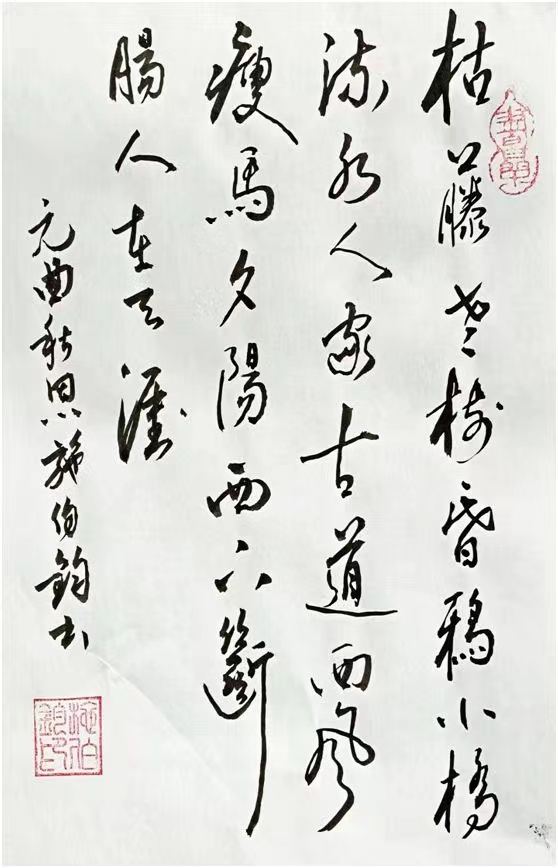 枯藤老樹昏鴉小橋
流水人家古道西風
瘦馬夕陽西下斷
腸人在天涯
元曲秋思施伯鈞书
施伯
鈞印